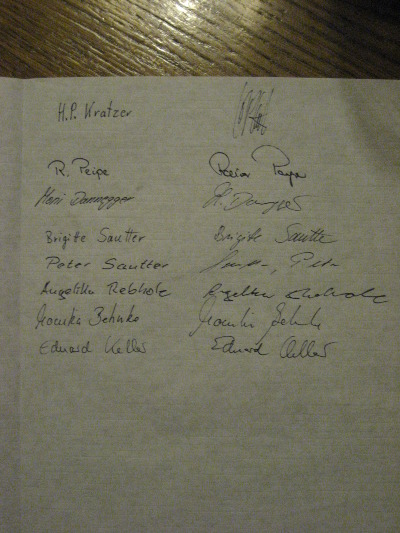 H.P. Kratzer
R. Peipe
Heni Dannegger H. Dannegger
Brigitte Sautter Brigitte Sautter
Peter Sautter Sautter, Peter
Angelika Rebholz Angelika Rebholz
Monika Behnke Monika Behnke
Eduard Keller Eduard Keller